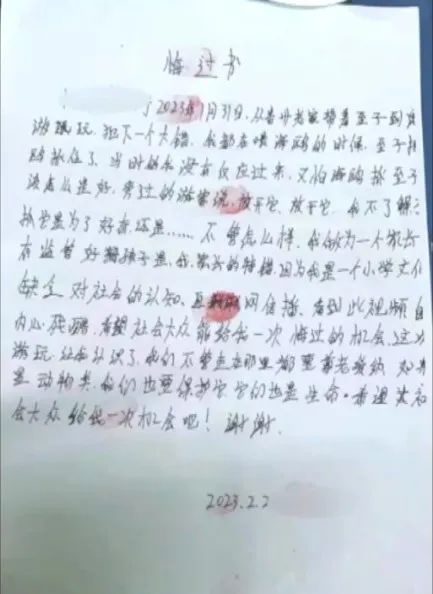 悔过书
于2023年1月31日,从贵州老家带着至子到
游玩玩,犯下一个大错,我都在喂海鸥的时候,至子把
鸥抓住了,当时的我没有反应过来,又怕海鸥抓至子
怎么是好,旁边的游客说,放开它,放开它,我不了解
抓它是为了好奇还是……不管怎么样,我做为一个家长
有监管好孩子是我家长的特错,因为我是一个小学文化
缺乏对社会的认知,网传播,看到此视频
内心,希望社会大众能给我一次悔过的机会,这次
游玩,认识了,我们不管走在哪里都要
是动物类,我们也要保护它,它们也是生命。希望
会大众给我一次机会吧!谢谢.
2023.2.2